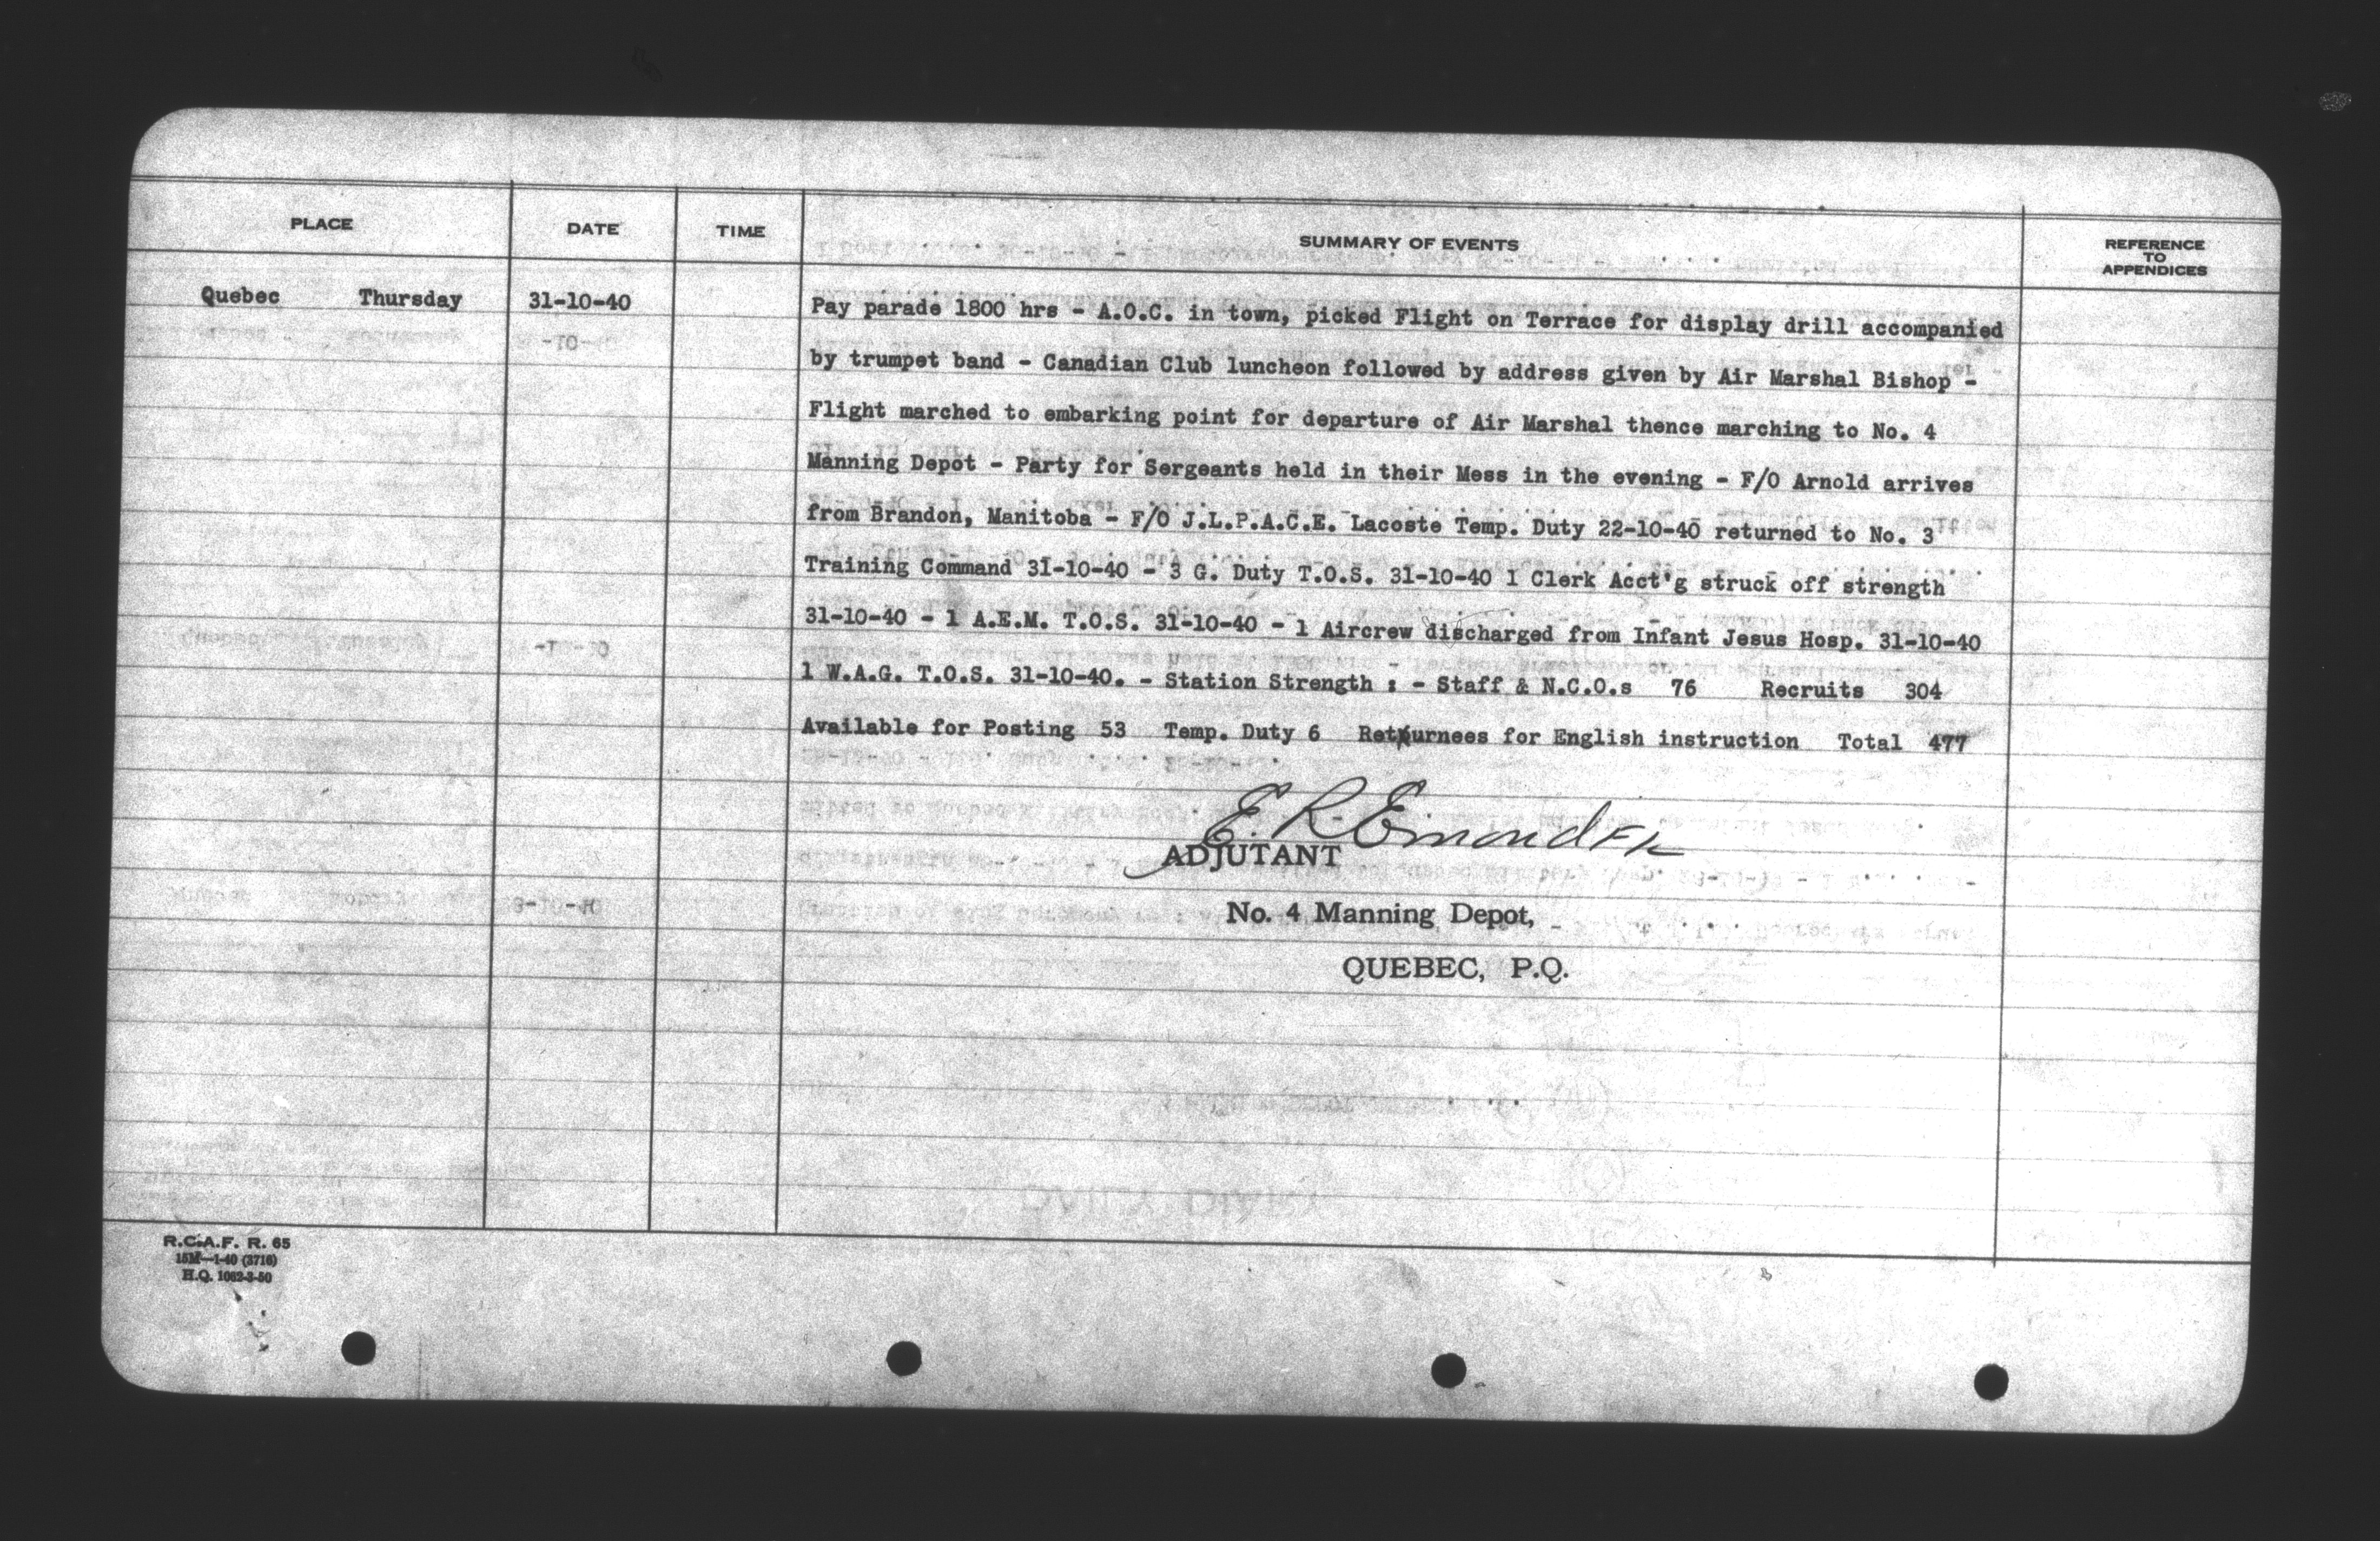 PLACE DATE TIME SUMMARY OF EVENTS REFERENCE TO APPENDICES
Quebec Thursday 31-10-40 Pay parade 1800 hrs - A.O.C. in town, picked Flight on Terrace for display drill accompanied
by trumpet band - Canadian Club luncheon followed by address given by Air Marshal Bishop -
Flight marched to embarking point for departure of Air Marshal thence marching to No. 4
Manning Depot - Party for Sergeants held in their Mess in the evening - F/O Arnold arrives
from Brandon, Manitoba - F/O J.L.P.A.C.E. Lacoste Temp. Duty 22-10-40 returned to No. 3
Training Command 31-10-40 - 3 G. Duty T.O.S. 31-10-40 1 Clerk Acct'g struck off strength
31-10-40 - 1 A.E.M. T.O.S. 31-10-40 - 1 Aircrew discharged from Infant Jesus Hosp. 31-10-40
1 W.A.G. T.O.S. 31-10-40. - Station Strength : - Staff & N.C.O.s 76 Recruits 304
Available for Posting 53 Temp. Duty 6 Returnees for English instruction Total 477
E. R. Emond
ADJUTANT
No. 4 Manning Depot,
QUEBEC, P.Q.
R.C.A.F. R. 65
15M—1-40 (3716)
H.Q. 1062-3-50